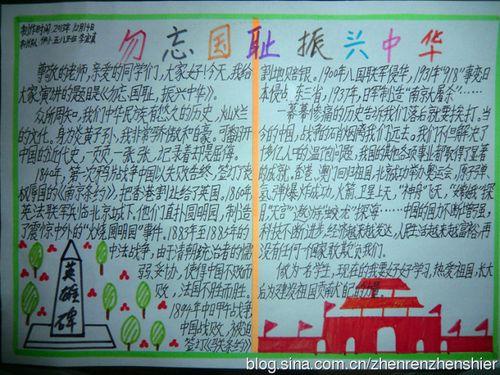 制作时间:2013年12月14日
勿忘国耻 振兴中华
尊敬的老师,亲爱的同学们,大家好!今天,我给
大家演讲的题目是《勿忘国耻,振兴中华》。
众所周知,我们中华民族有悠久的历史,灿烂
的文化。身为炎黄子孙,我非常骄傲和自豪。可翻开
中国的近代史,一页页,一张张,记录着却是屈辱。
1840年,第一次鸦片战争中国以失败告终,签订了丧
权辱国的《南京条约》,把香港割让给了英国。1860年
英法联军攻占北京城下,他们直扑圆明园,制造
了震惊中外的“火烧圆明园”事件。1883年至1885年的
中法战争,由于清朝统治者的懦
弱,妥协,使得中国不败而
败,法国不胜而胜。
1894年中日甲午战争
中国战败,被迫
签订《马关条约》
英雄碑
割地赔银。1900年八国联军侵华,1931年“9.18”事变日
本侵占东三省,1937年,日军制造“南京大屠杀”……
一幕幕惨痛的历史告诉我们落后就要挨打。当
今的中国,战争的硝烟离我们远去。我们不但解决了
十多亿人口的温饱问题,我国的其他各项事业都取得了显著
的成就。香港、澳门回归祖国,北京成功举办奥运会,原子弹、
氢弹爆炸成功,火箭卫星上天,“神舟”飞天,
科技不断进步,经济越来越发达,人民生活越来越富裕,再
没有任何一个国家敢欺负我们。
做为一名学生,现在的我要好好学习,热爱祖国,长大
后为建设祖国贡献自己的力量。
blog.sina.com.cn/zhenrenzhenshier